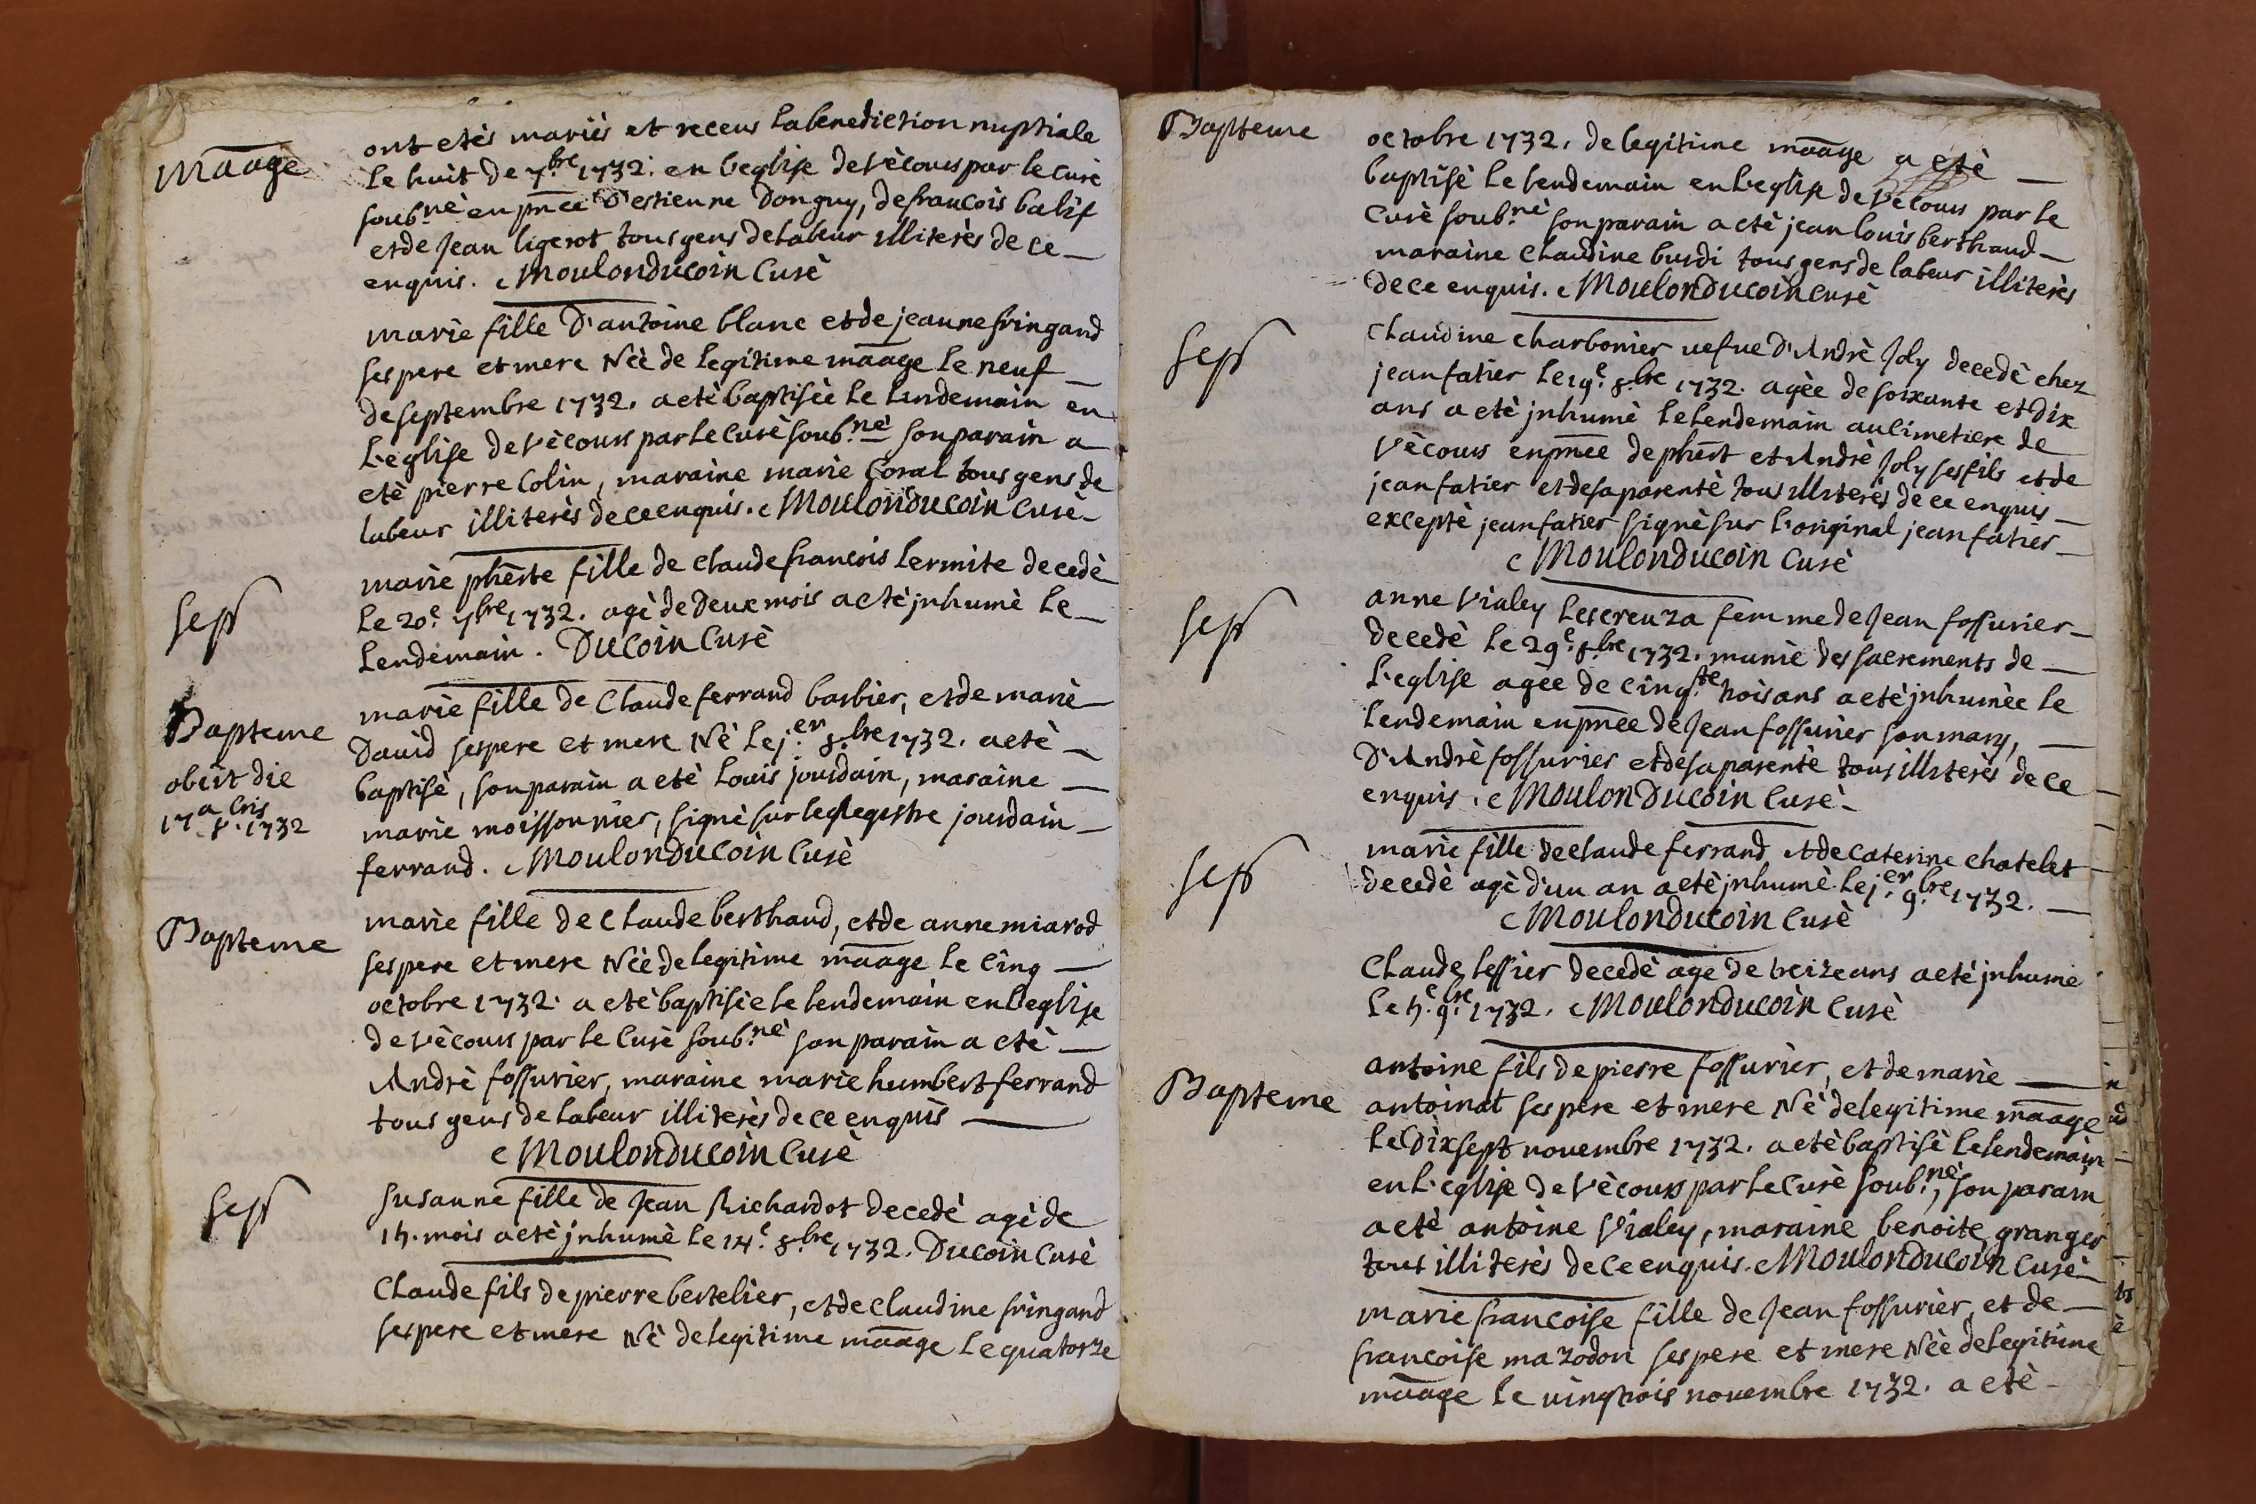 maage
ont etès mariès et receus la benediction nuptiale
le huit de 7.bre 1732. en l'eglise de vècours par le curè
soub.nè en pnce d'estienne Donguy, de francois balif
et de Jean ligerot tous gens de labeur illiterès de ce
enquis. Moulonducoin Curè
marie fille D'antoine blanc et de jeanne fringand
ses pere et mere Nèe de legitime maage le neuf
de septembre 1732. a etè baptisèe le lendemain en
l'eglise de vècours par le Curè soub.nè son parain a
etè pierre Colin, maraine marie Coral tous gens de
labeur illiterès de ce enquis. Moulonducoin Curè
Sep
marie phèrte fille de Claude francois lermite decedè
le 20.e 7bre 1732. agè de Deux mois a etè jnhumè le
lendemain. DuCoin Curè
Bapteme
obiit die
17a 8.bris 1732
marie fille de Claude ferrand barbier, et de marie
David ses pere et mere Nè le j.er 8.bre 1732. a etè
baptisè, son parain a etè Louis jourdain, maraine
marie moissonnier, signè sur le Regestre jourdain
ferrand. Moulonducoin Curè
Bapteme
marie fille de Claude berthaud, et de anne miarod
ses pere et mere Nèe de legitime maage le Cinq
octobre 1732. a etè baptisèe le lendemain en l'eglise
de vècours par le Curè soub.nè son parain a etè
Andrè fossurier, maraine marie humbert ferrand
tous gens de labeur illiterès de ce enquis
Moulonducoin Curè
Sep
Susanne fille de Jean Richardot decedè agè de
15. mois a etè jnhumè le 14.e 8.bre 1732. Ducoin Curè
Claude fils de pierre bertelier, et de Claudine fringand
ses pere et mere Nè de legitime maage le quatorze
Bapteme
octobre 1732. de legitime maage a etè
baptisè le lendemain en l'eglise de vècours par le
Curè soub.nè son parain a etè jean Louis berthaud
maraine Claudine burdi tous gens de labeur illiterès
de ce enquis. Moulonducoin Curè
Sep
Claudine Charbonier vefve D'Andrè Joly decedè chez
jean fatier le 19.e 8.bre 1732. agèe de soixante et dix
ans a etè jnhumè le lendemain au cimetiere de
vècours en pnce de phert et Andrè Joly ses fils et de
jean fatier et de sa parentè tous illiterès de ce enquis
exceptè jean fatier signè sur l'original jean fatier
Moulonducoin Curè
Sep
anne vialey lescreuza femme de Jean fossurier
decedè le 29.e 8.bre 1732. munie des sacrements de
l'eglise agèe de cinq.te trois ans a etè jnhumèe le
lendemain en pnce de Jean fossurier son mary,
D'Andrè fossurier et de sa parentè tous illiterès de ce
enquis. Moulonducoin Curè
Sep
marie fille de Claude ferrand et de Caterine chatelet
decedè agè d'un an a etè jnhumè le j.er 9.bre 1732.
Moulonducoin Curè
Claude tessier decedè agè de treize ans a etè jnhumè
le 5.e 9.bre 1732. Moulonducoin Curè
Bapteme
antoine fils de pierre fossurier, et de marie
antoinat ses pere et mere Nè de legitime maage
le Dix sept novembre 1732. a etè baptisè le lendemain
en l'eglise de vècours par le Curè soub.nè, son parain
a etè antoine vialey, maraine benoite granger
tous illiterès de ce enquis. Moulonducoin Curè
marie francoise fille de Jean fossurier, et de
francoise mazodon ses pere et mere Nèe de legitime
maage le vingtrois novembre 1732. a etè